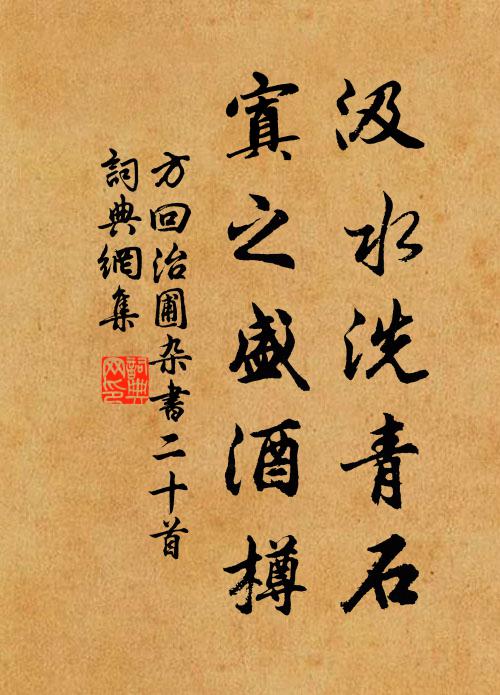 汲水洗青石
寘之盛酒樽
方回治圃杂書二十首
詞典網集
詞典網印